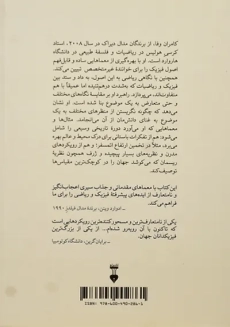 کامران وفا، از برندگان مدال دیراک در سال ۲۰۰۸، استاد
کرسی هولیس در ریاضیات و فلسفهٔ طبیعی در دانشگاه
هاروارد است. او با بهره‌گیری از معماهایی ساده و قابل‌فهم
اصول فیزیک را برای خوانندهٔ غیرمتخصص تبیین می‌کند.
همچنین با نگاهی ریاضی به این اصول، به داد و ستد بین
فیزیک و ریاضیات که به‌شدت درهم‌تنیده اما عمیقاً با هم
متفاوت‌اند، می‌پردازد. راهبرد او بر مقایسهٔ نگاه‌های مختلف
و حتی متعارض به یک موضوع بنا شده است. او نشان
می‌دهد که چگونه نگریستن از منظرهای مختلف به یک
موضوع به غنای دانش‌مان از آن می‌انجامد. مثال‌ها و
معماهایی که او می‌آورد دورهٔ تاریخی وسیعی را شامل
می‌شود: از تفکرات باستانی برای درک محیط و عالم بهره
می‌گیرد، تا مدرن‌ترین ابزارهای
مدرن و نظریه‌های بسیار پیچیده و ژرف همچون نظریهٔ
ریسمان که می‌کوشد جهان را در کوچک‌ترین مقیاس‌ها
توصیف کند.
این کتاب با معماهای مقدماتی و جذاب سیری اعجاب‌انگیز
و نامتعارف از ایده‌های پیشرفتهٔ فیزیک و ریاضی را برای ما
فراهم می‌کند.
ـ ادوارد ویتن، برندهٔ مدال فیلدز ۱۹۹۰
یکی از نامتعارف‌ترین و مسحورکننده‌ترین رویکردهایی است
که تاکنون با آن روبه‌رو شده‌ام... از یکی از بزرگ‌ترین
فیزیکدانان جهان.
ـ برایان گرین، دانشگاه کلمبیا